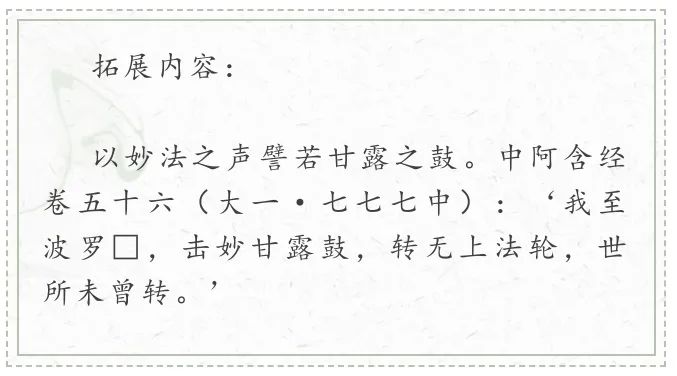 拓展内容：
以妙法之声譬若甘露之鼓。中阿含经
卷五十六（大一·七七七中）：‘我至
波罗□，击妙甘露鼓，转无上法轮，世
所未曾转。’